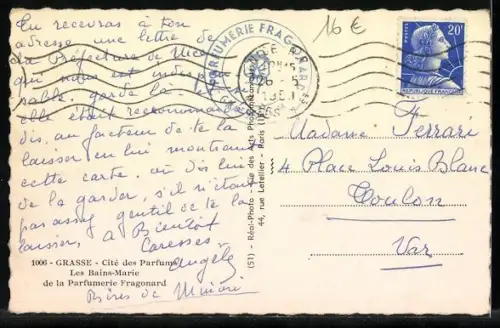 En recevras à ton
adresse une lettre de
la Préfecture de Nice
qui nous est indispen
sable, garde la - et si
elle était recommandée
dis, au facteur de te la
laisser en lui montrant
cette carte, ou dis lui
de la garder, s'il n'était
pas assez gentil de te la
laisser, à Bientôt
Caresses
Angèle
Bises de
1006 - GRASSE - Cité des Parfums
Les Bains-Marie
de la Parfumerie Fragonard
PARFUMERIE FRAGONARD
(51) - Réal-Photo
44, rue Letellier - Paris
16 €
POSTES
20F
RÉPUBLIQUE FRANÇAISE
Madame Ferrari
4 Place Louis Blanc
Toulon
Var